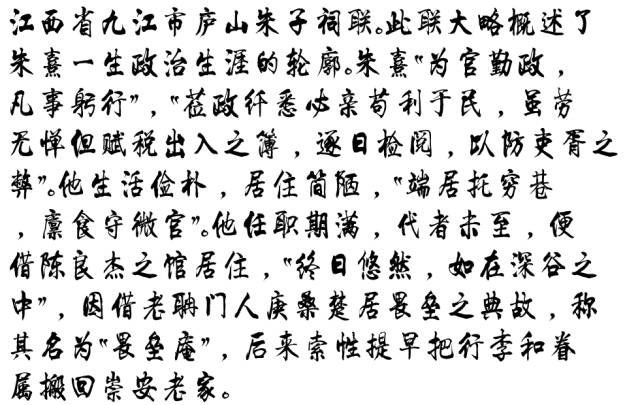 江西省九江市庐山朱子祠联。此联大略概述了
朱熹一生政治生涯的轮廓。朱熹“为官勤政，
凡事躬行”，“莅政纤悉必亲苟利于民，虽劳
无惮但赋税出入之簿，逐日检阅，以防吏胥之
弊”。他生活俭朴，居住简陋，“端居托穷巷
，廪食守微官”。他任职期满，代者未至，便
借陈良杰之馆居住，“终日悠然，如在深谷之
中”，因借老聃门人庚桑楚居畏垒之典故，称
其名为“畏垒庵”，后来索性提早把行李和眷
属搬回崇安老家。